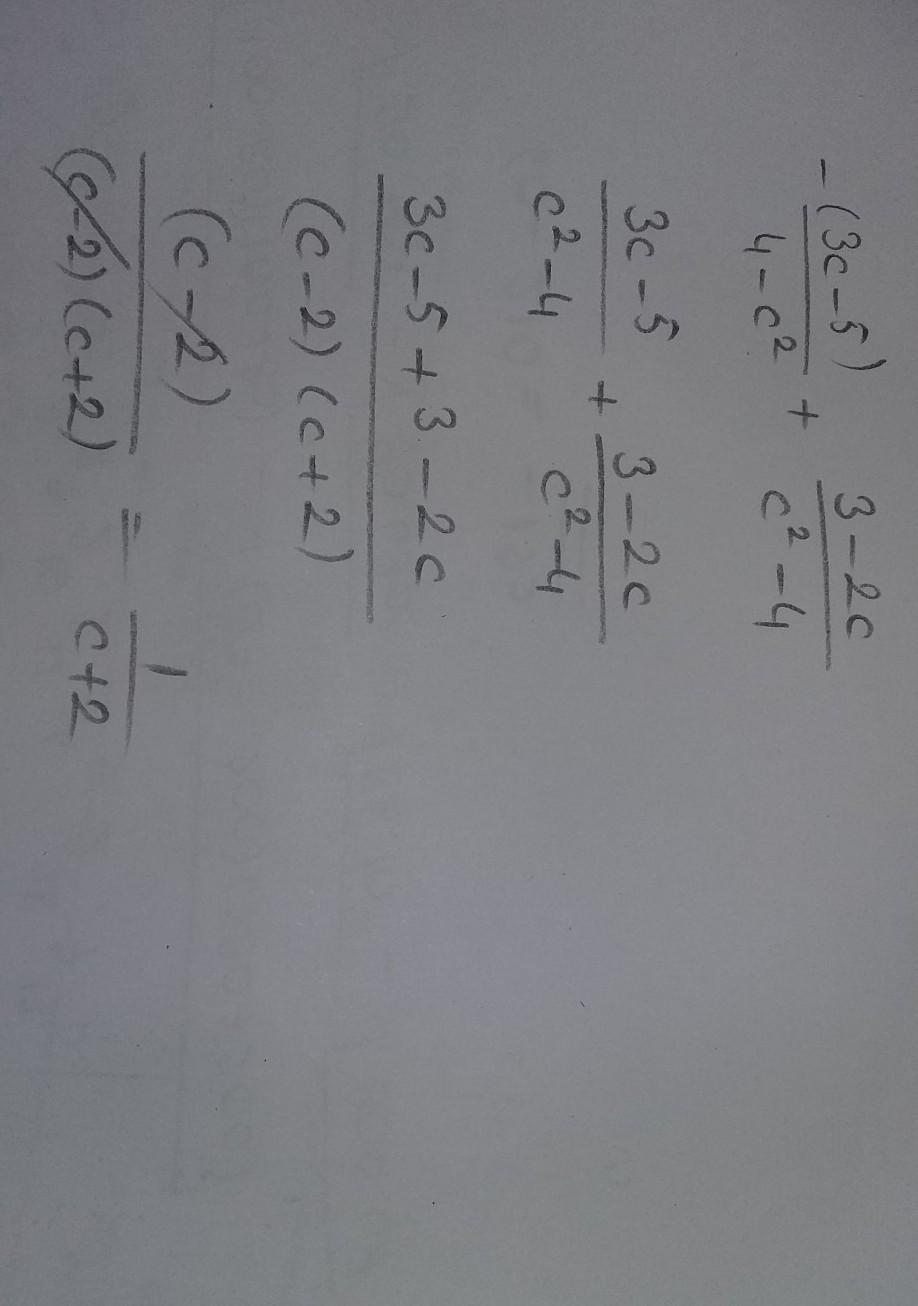 -(3c-5)/(4-c²) + (3-2c)/(c²-4)
(3c-5)/(c²-4) + (3-2c)/(c²-4)
(3c-5+3-2c)/((c-2)(c+2))
(c-2)/((c-2)(c+2)) = 1/(c+2)